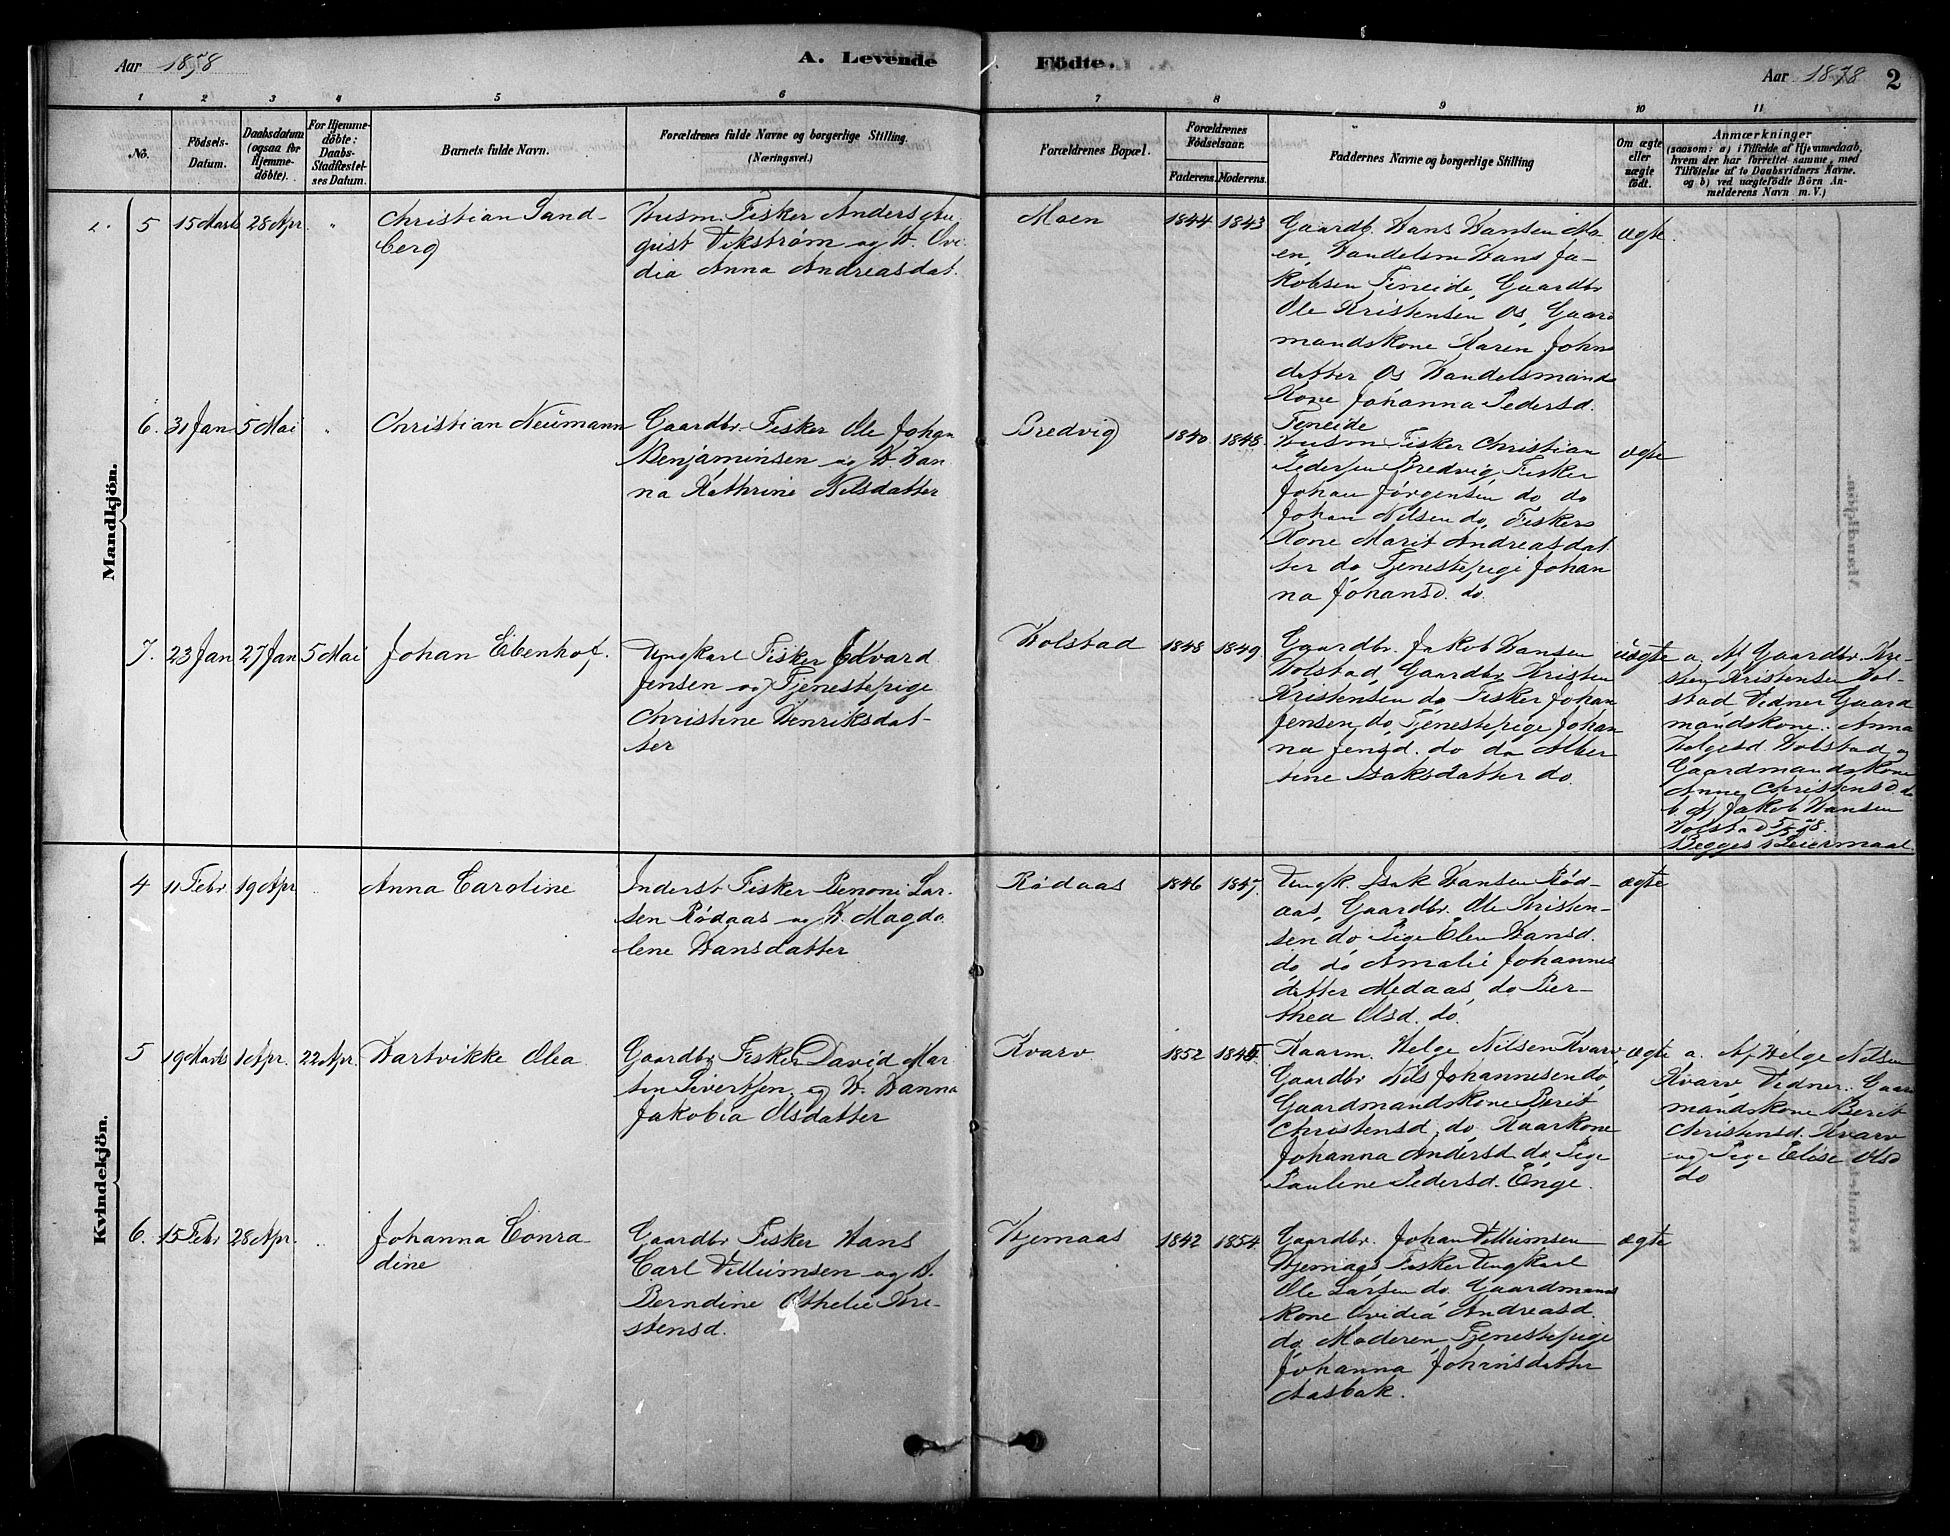 Aar 1878
A. Levende
Födte.
Aar 1878
2
1
2
3
4
5
6
7
8
9
10
11
No.
Födsels-
Datum.
Daabsdatum
(ogsaa for
Hjemme-
döbte).
For Hjemme-
döbte:
Daabs-
Stadfæstel-
ses Datum.
Barnets fulde Navn.
Forældrenes fulde Navne og borgerlige Stilling.
(Næringsvei.)
Forældrenes Bopæl.
Forældrenes
Födselsaar.
Faderens.
Moderens.
Faddernes Navne og borgerlige Stilling
Om ægte
eller
uægte
födt.
Anmærkninger
(saasom: a) i Tilfælde af Hjemmedaab,
hvem der har forrettet samme, med
Tilföielse af to Daabsvidners Navne.
og b) ved uægtefödte Börn An-
melderens Navn m. V.)
Mandkjön.
5
15 Marts
28 Apr.
"
Christian Sand-
berg
Husm. Fisker Anders Au-
gust Vikstrøm og H. Ovi-
dia Anna Andreasdat.
Moen
1844
1843
Gaardb. Hans Hansen Mo-
en, Handelsm Hans Ja-
kobsen Fineide, Gaardbr
Ole Kristensen Os, Gaard
mandskone Karen Johns
datter Os Handelsmands
Kone Johanna Pedersd.
Fineide
ægte
6.
31 Jan
5 Mai
"
Christian Neumann
Gaardbr. Fisker Ole Johan
Benjaminsen og H. Han
na Kathrine Nilsdatter
Bredvig
1840
1848.
Husm Fisker Christian
Pedersen Bredvig, Fisker
Johan Jørgensen do do
Johan Nilsen do, Fiskers
Kone Marit Andreasdat
ter do Tjenestepige Johan
na Johansd. do.
ægte
7.
23 Jan
27 Jan
5 Mai
Johan Ebenhof.
Ungkarl Fisker Edvard
Jensen og Tjenestepige
Christine Henriksdat-
ter
Holstad
1848
1849
Gaardbr. Jakob Hansen
Holstad, Gaardbr Kristen
Kristensen do Fisker Johan
Jensen do, Tjenestepige Johan
na Jensd. do do Alber
tine Isaksdatter do
uægte
a. Af Gaardbr. Kri-
sten Kristensen Hol-
stad Vidner Gaard
mandskone. Anna
Helgesd. Holstad og
Gaardmandskone
Anne Christensd. do
b. Af Jakob Hansen
Holstad 5/5 78.
Begges 1 Leiermaal.
Kvindekjön.
4
11 Febr
19 Apr
Anna Caroline
Inderst Fisker Benoni Lar-
sen Rødaas og H. Magda
lene Hansdatter
Rødaas
1846
1847.
Ungk. Isak Hansen Rød-
aas, Gaardbr. Ole Kristen-
sen do Pige Elen Hansd.
do do Amalie Johannes
datter Medaas, do Ber-
thea Olsd. do.
ægte
5
19 Marts
1 Apr.
22 Apr.
Hartvikke Olea
Gaardbr Fisker David Mar
tin Sivertsen og H. Hanna
Jakobia Olsdatter
Kvarv
1852
1845.
Kaarm. Helge Nilsen Kvarv
Gaardbr Nils Johannesen do,
Gaardmandskone Berit
Christensd. do Kaarkone
Johanna Andersd do, Pige
Pauline Pedersd. Enge.
ægte
a. Af Helge Nilsen
Kvarv Vidner. Gaar
mandskone Berit
Christensd. Kvarv
og Pige Elise Olsd
do
6.
15 Febr
28 Apr.
Johanna Conra
dine
Gaardbr Fisker Hans
Carl Villumsen og H.
Berndine Othelie Kri-
stensd.
Hjemaas
1842
1854
Gaardbr. Johan Villumsen
Hjemaas Fisker Ungkarl
Ole Larsen do. Gaardmans
kone Ovidia Andreasd.
do Moderen Tjenestepige
Johanna Johansdatter
Aasbak.
ægte